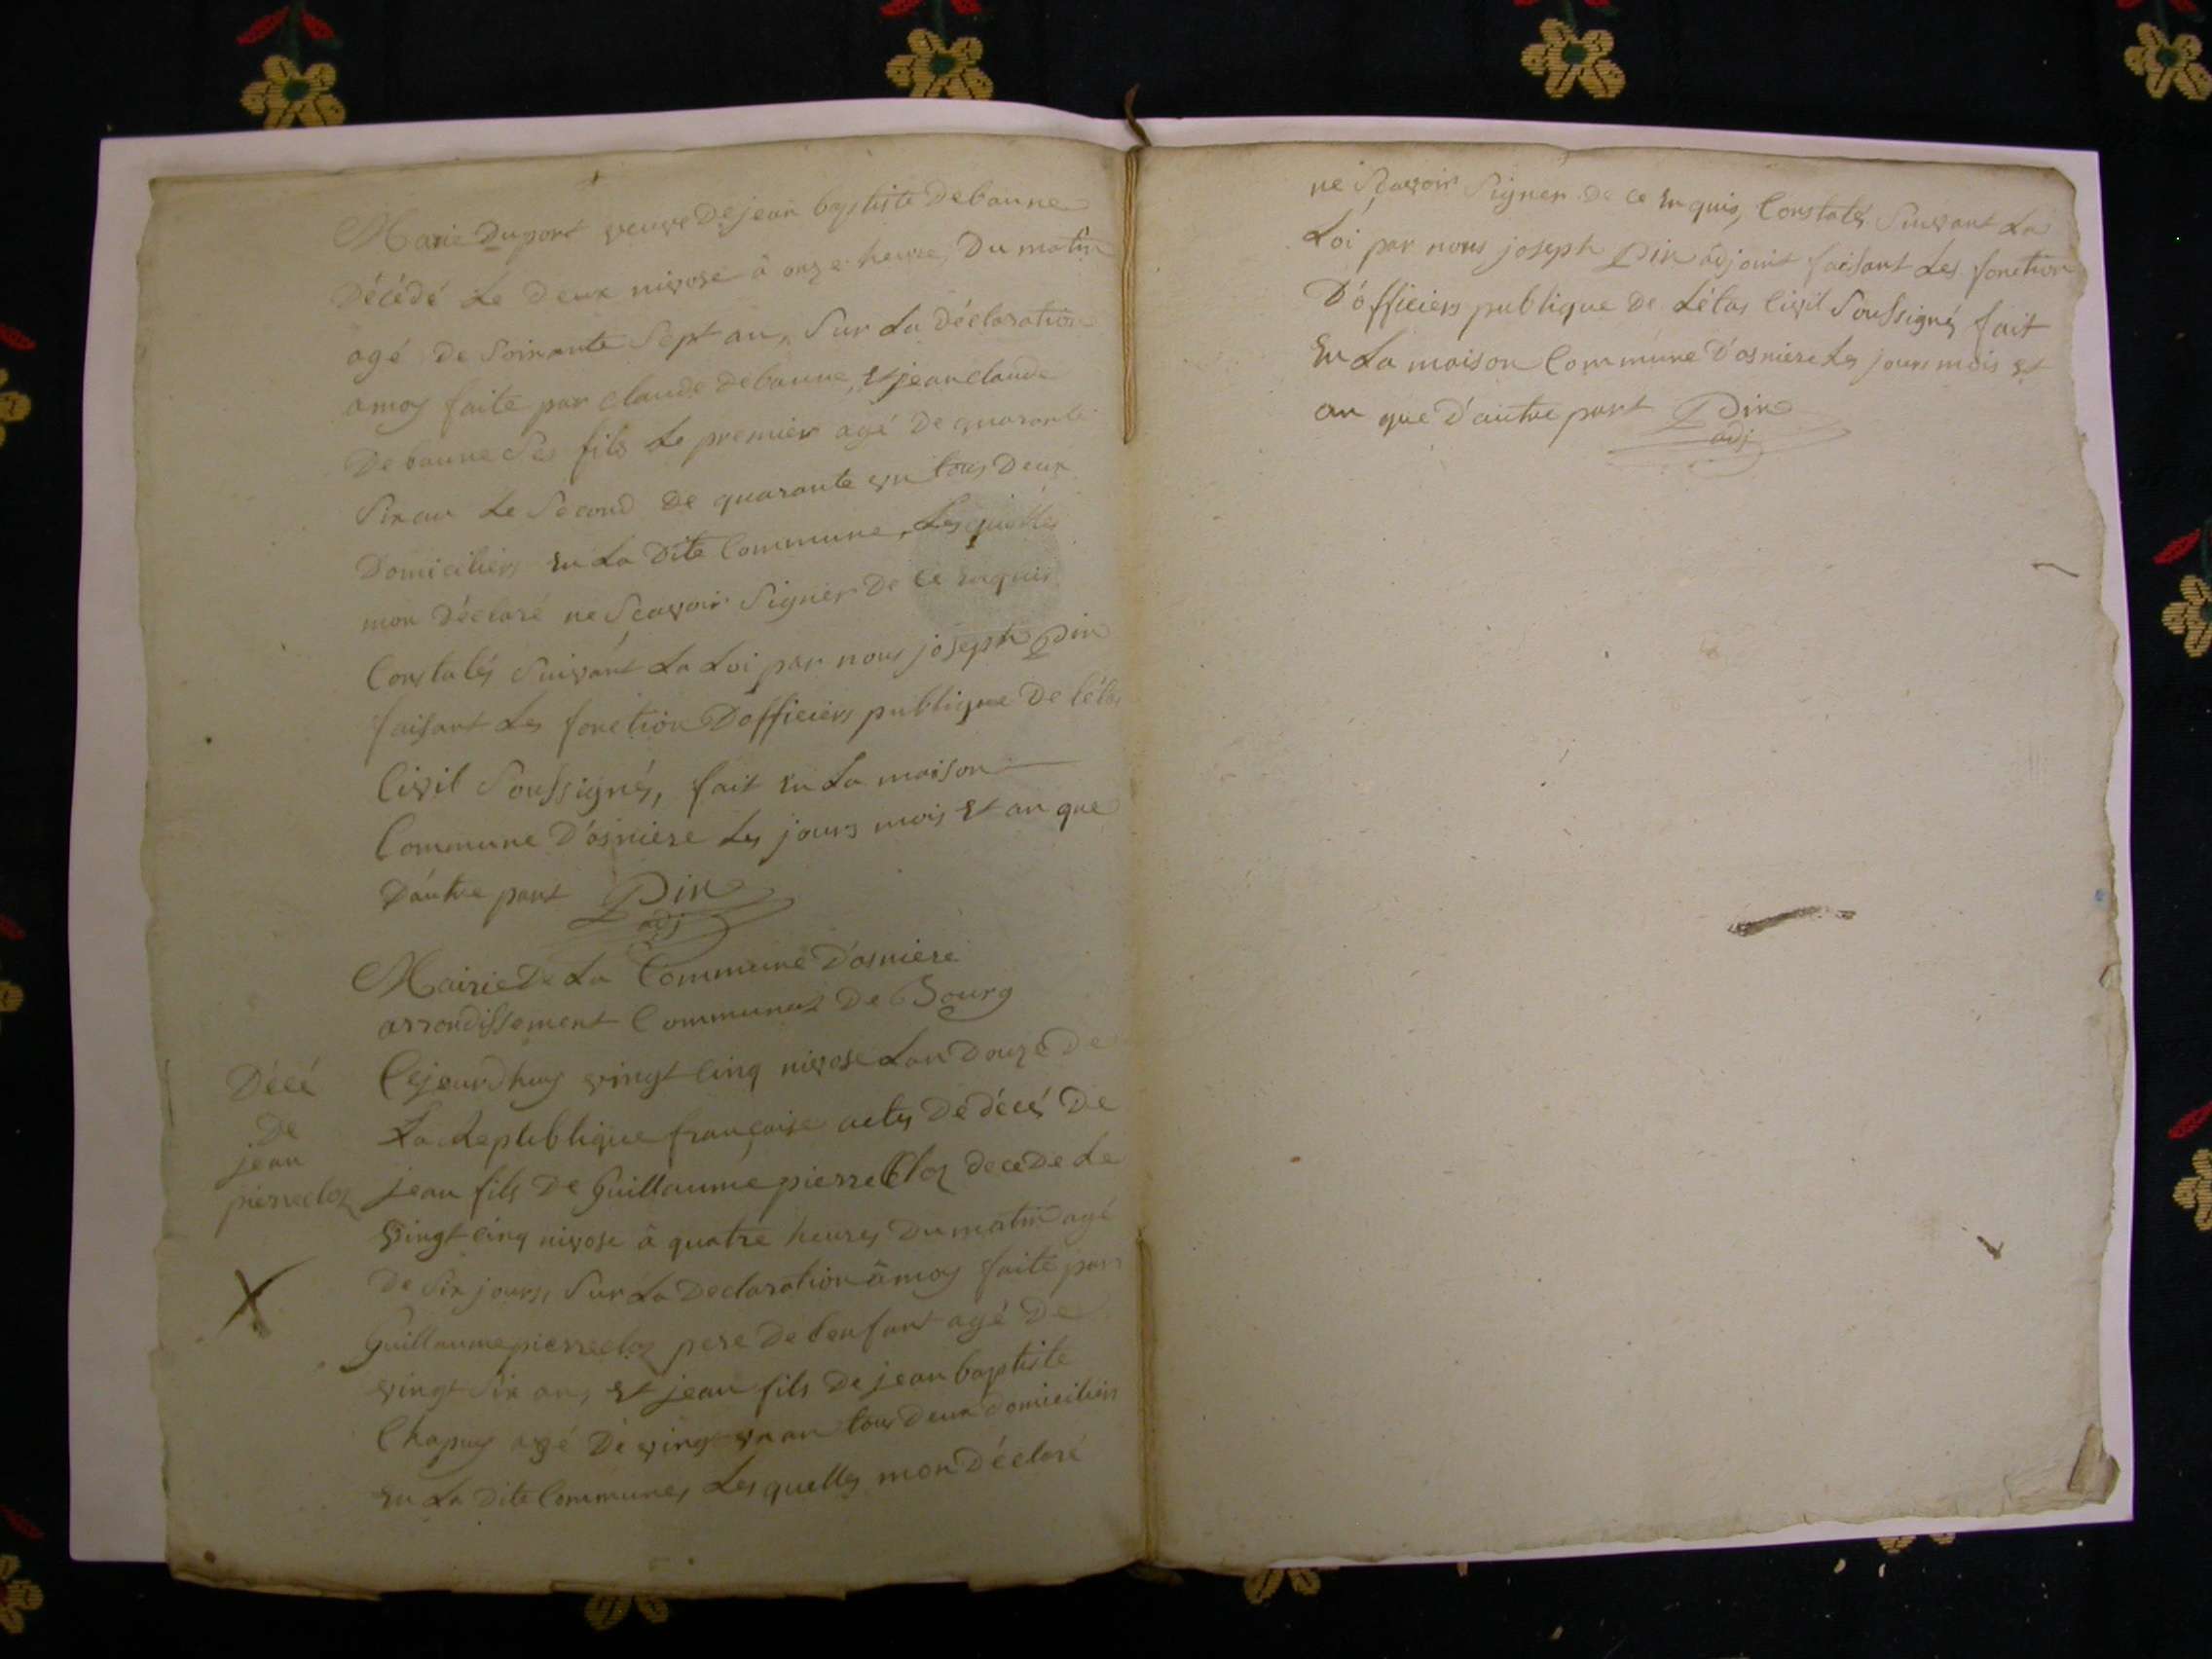 Marie Duport veuve De jean baptiste Debaune
Décédé Le Deux nivose â onze heure, Du matin
agé De Soixante Sept an, Sur La Déclaration
amoy faite par Claude Debaune, et jean claude
Debaune Ses fils Le premier agé De quarante
Six an Le Second De quarante un tous Deux
Domiciliers en La Dite Commune, Les quelles
mon Déclaré ne Scavoir Signer De ce enquis
Constatés Suivant La Loi par nous joseph Pin
faisant Les fonction Dofficiers publique De Létas
Civil Soussignés, fait en La maison
Commune D'asniere Les jours mois et an que
Dautre part Pin
adj
Mairie De La Commune D'asniere
arrondissement Communal De Bourg
Décé
De
jean
pierreclos
Cejourdhuy vingt cinq nivose Lan Douze De
La Republique française actes De décé De
jean fils De Guillaume pierreClos decede Le
vingt cinq nivose â quatre heures Du matin agé
De Six jours, Sur La Declaration âmoy faite par
Guillaume pierreclos pere De Lenfant agé De
vingt Six an, et jean fils De jean baptiste
Chapuy agé De vingt un an tous Deux domiciliers
en La Dite Communes Les quelles mon Déclaré
ne Scavoir Signer De ce enquis, Constatés Suivant La
Loi par nous joseph Pin adjoint faisant Les fonction
D'officiers publique De Létas Civil Soussignés fait
en La maison Commune D'asniere Les jours mois et
an que D'autre part Pin
adj